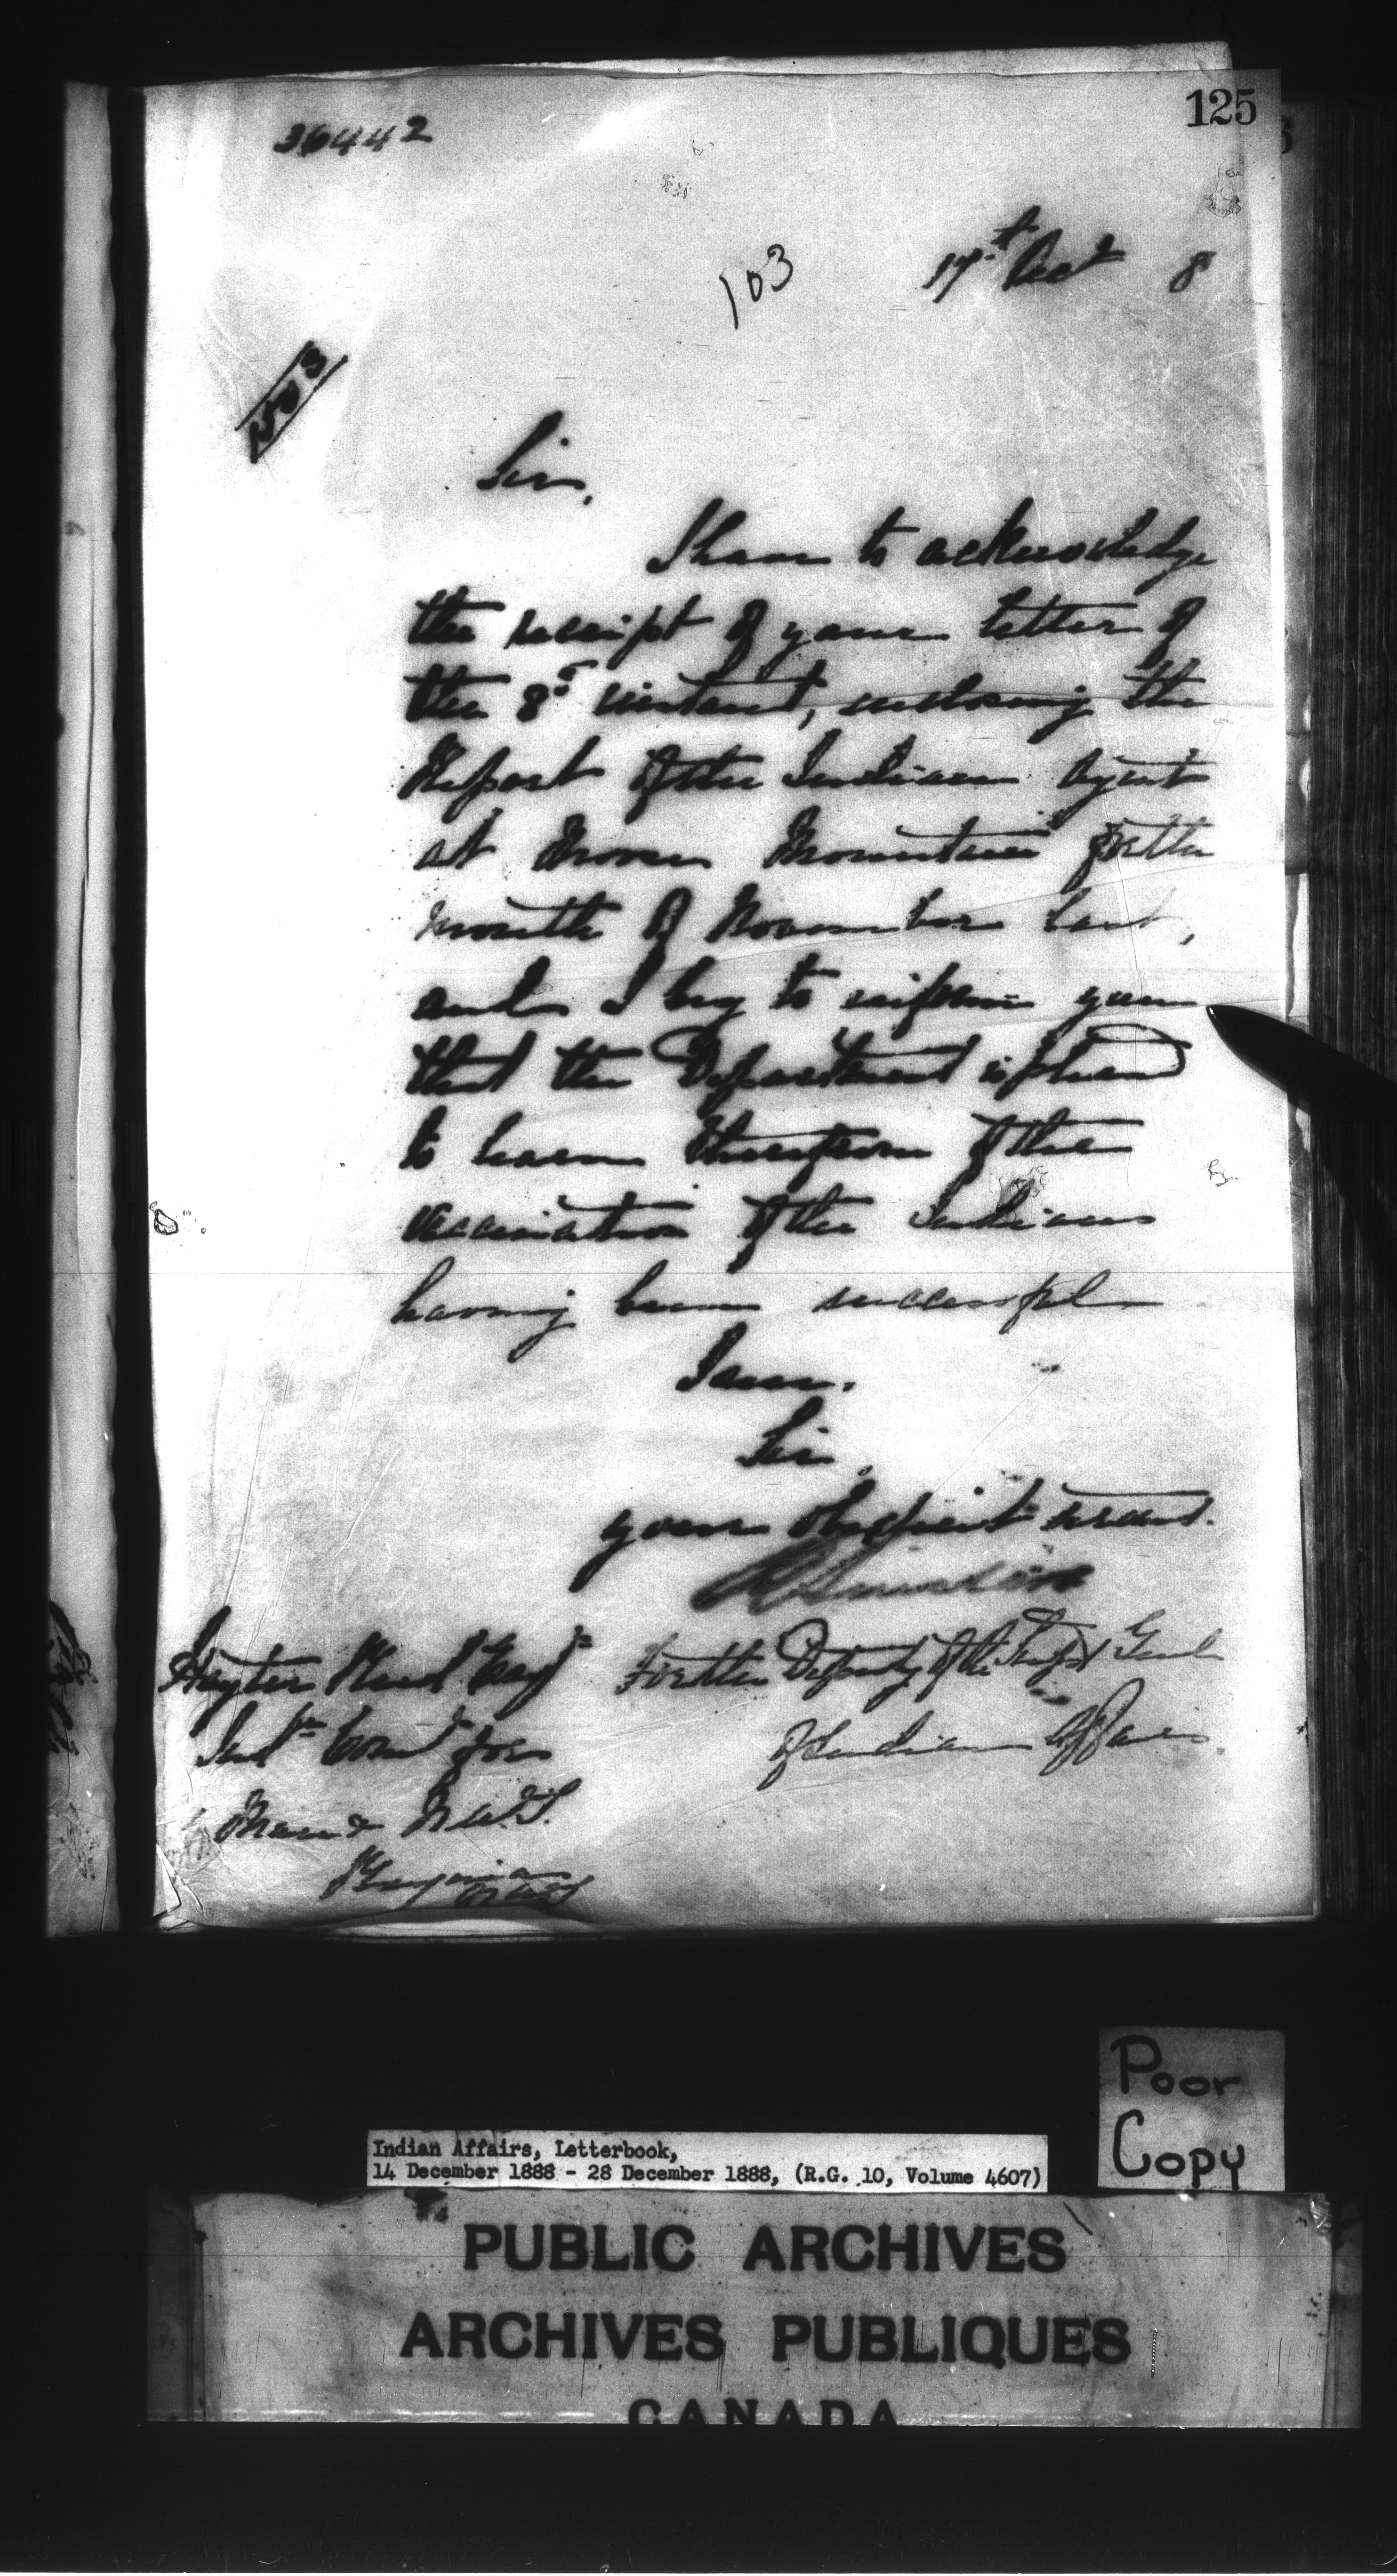 125
36442
103
17th Decr 8
Sir,
I have to acknowledge
the receipt of your letter of
the 8th instant, enclosing the
Report of the Indian Agent
at Moose Mountain for the
month of November last,
and I beg to inform you
that the Department is pleased
to learn therefrom of the
vaccination of the Indians
having been successful
I am.
Sir,
your obedient servant.
R Sinclair
For the Deputy of the Supt Genl
of Indian Affairs.
Hayter Reed Esqre
Indn Comr for
Man & N.W.T.
Regina
Poor
Copy
Indian Affairs, Letterbook,
14 December 1888 - 28 December 1888, (R.G. 10, Volume 4607)
PUBLIC ARCHIVES
ARCHIVES PUBLIQUES
CANADA